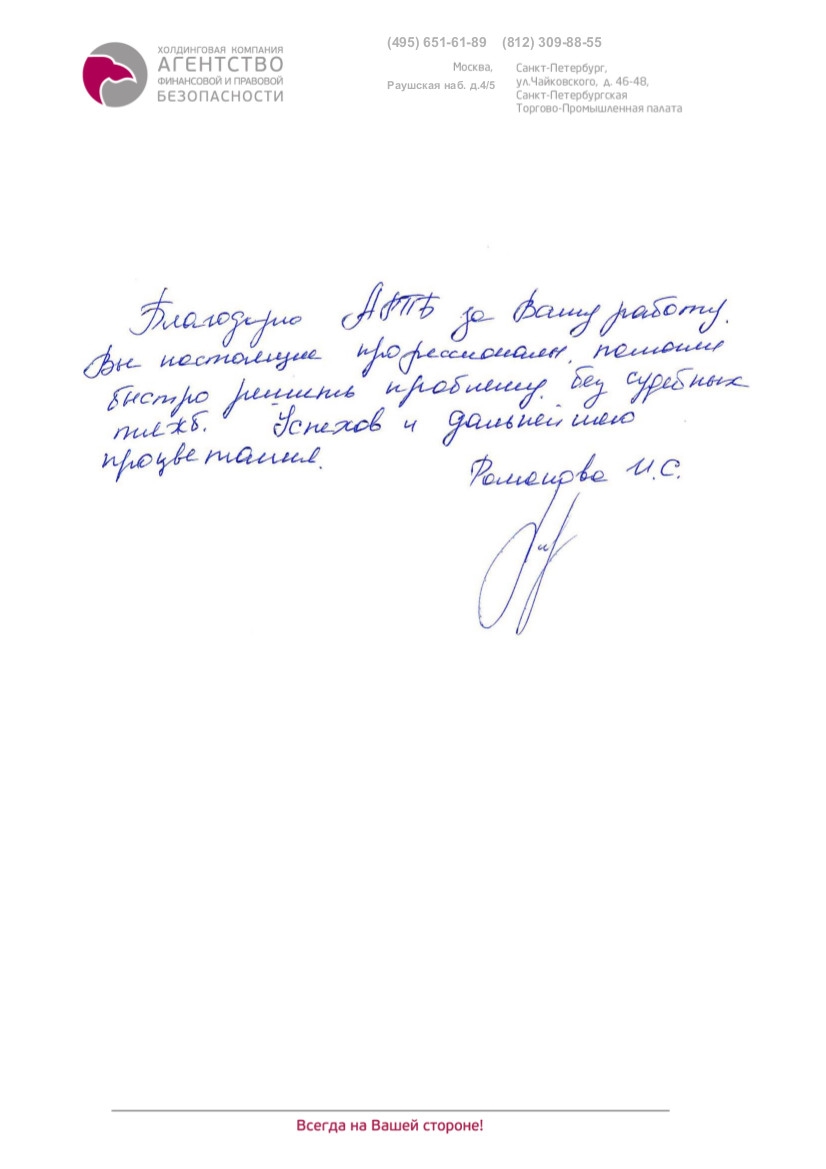 ХОЛДИНГОВАЯ КОМПАНИЯ
АГЕНТСТВО
ФИНАНСОВОЙ И ПРАВОВОЙ
БЕЗОПАСНОСТИ
(495) 651-61-89 (812) 309-88-55
Москва,
Раушская наб. д.4/5
Санкт-Петербург,
ул.Чайковского, д. 46-48,
Санкт-Петербургская
Торгово-Промышленная палата
Благодарю АФПБ за Вашу работу.
Вы настоящие профессионалы, помогли
быстро решить проблему без судебных
тяжб. Успехов и дальнейшего
процветания.
Романова И.С.
Всегда на Вашей стороне!